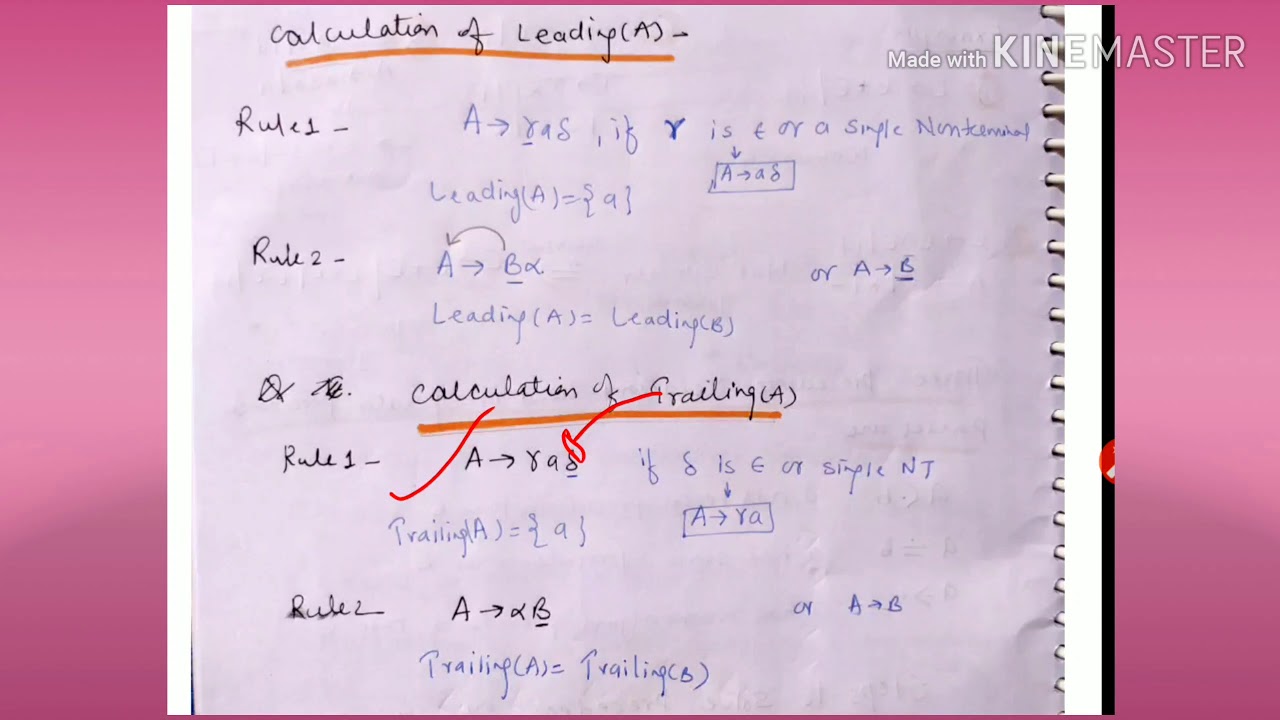 Calculation of Leading(A) -
Made with KINEMASTER
Rule 1 - A → γaδ , if γ is ϵ or a single Nonterminal
↓
A → aδ
Leading(A) = {a}
Rule 2 - A → Bα or A → B
Leading(A) = Leading(B)
Calculation of Trailing(A)
Rule 1 - A → γaδ if δ is ϵ or single NT
↓
A → γa
Trailing(A) = {a}
Rule 2 A → αB or A → B
Trailing(A) = Trailing(B)